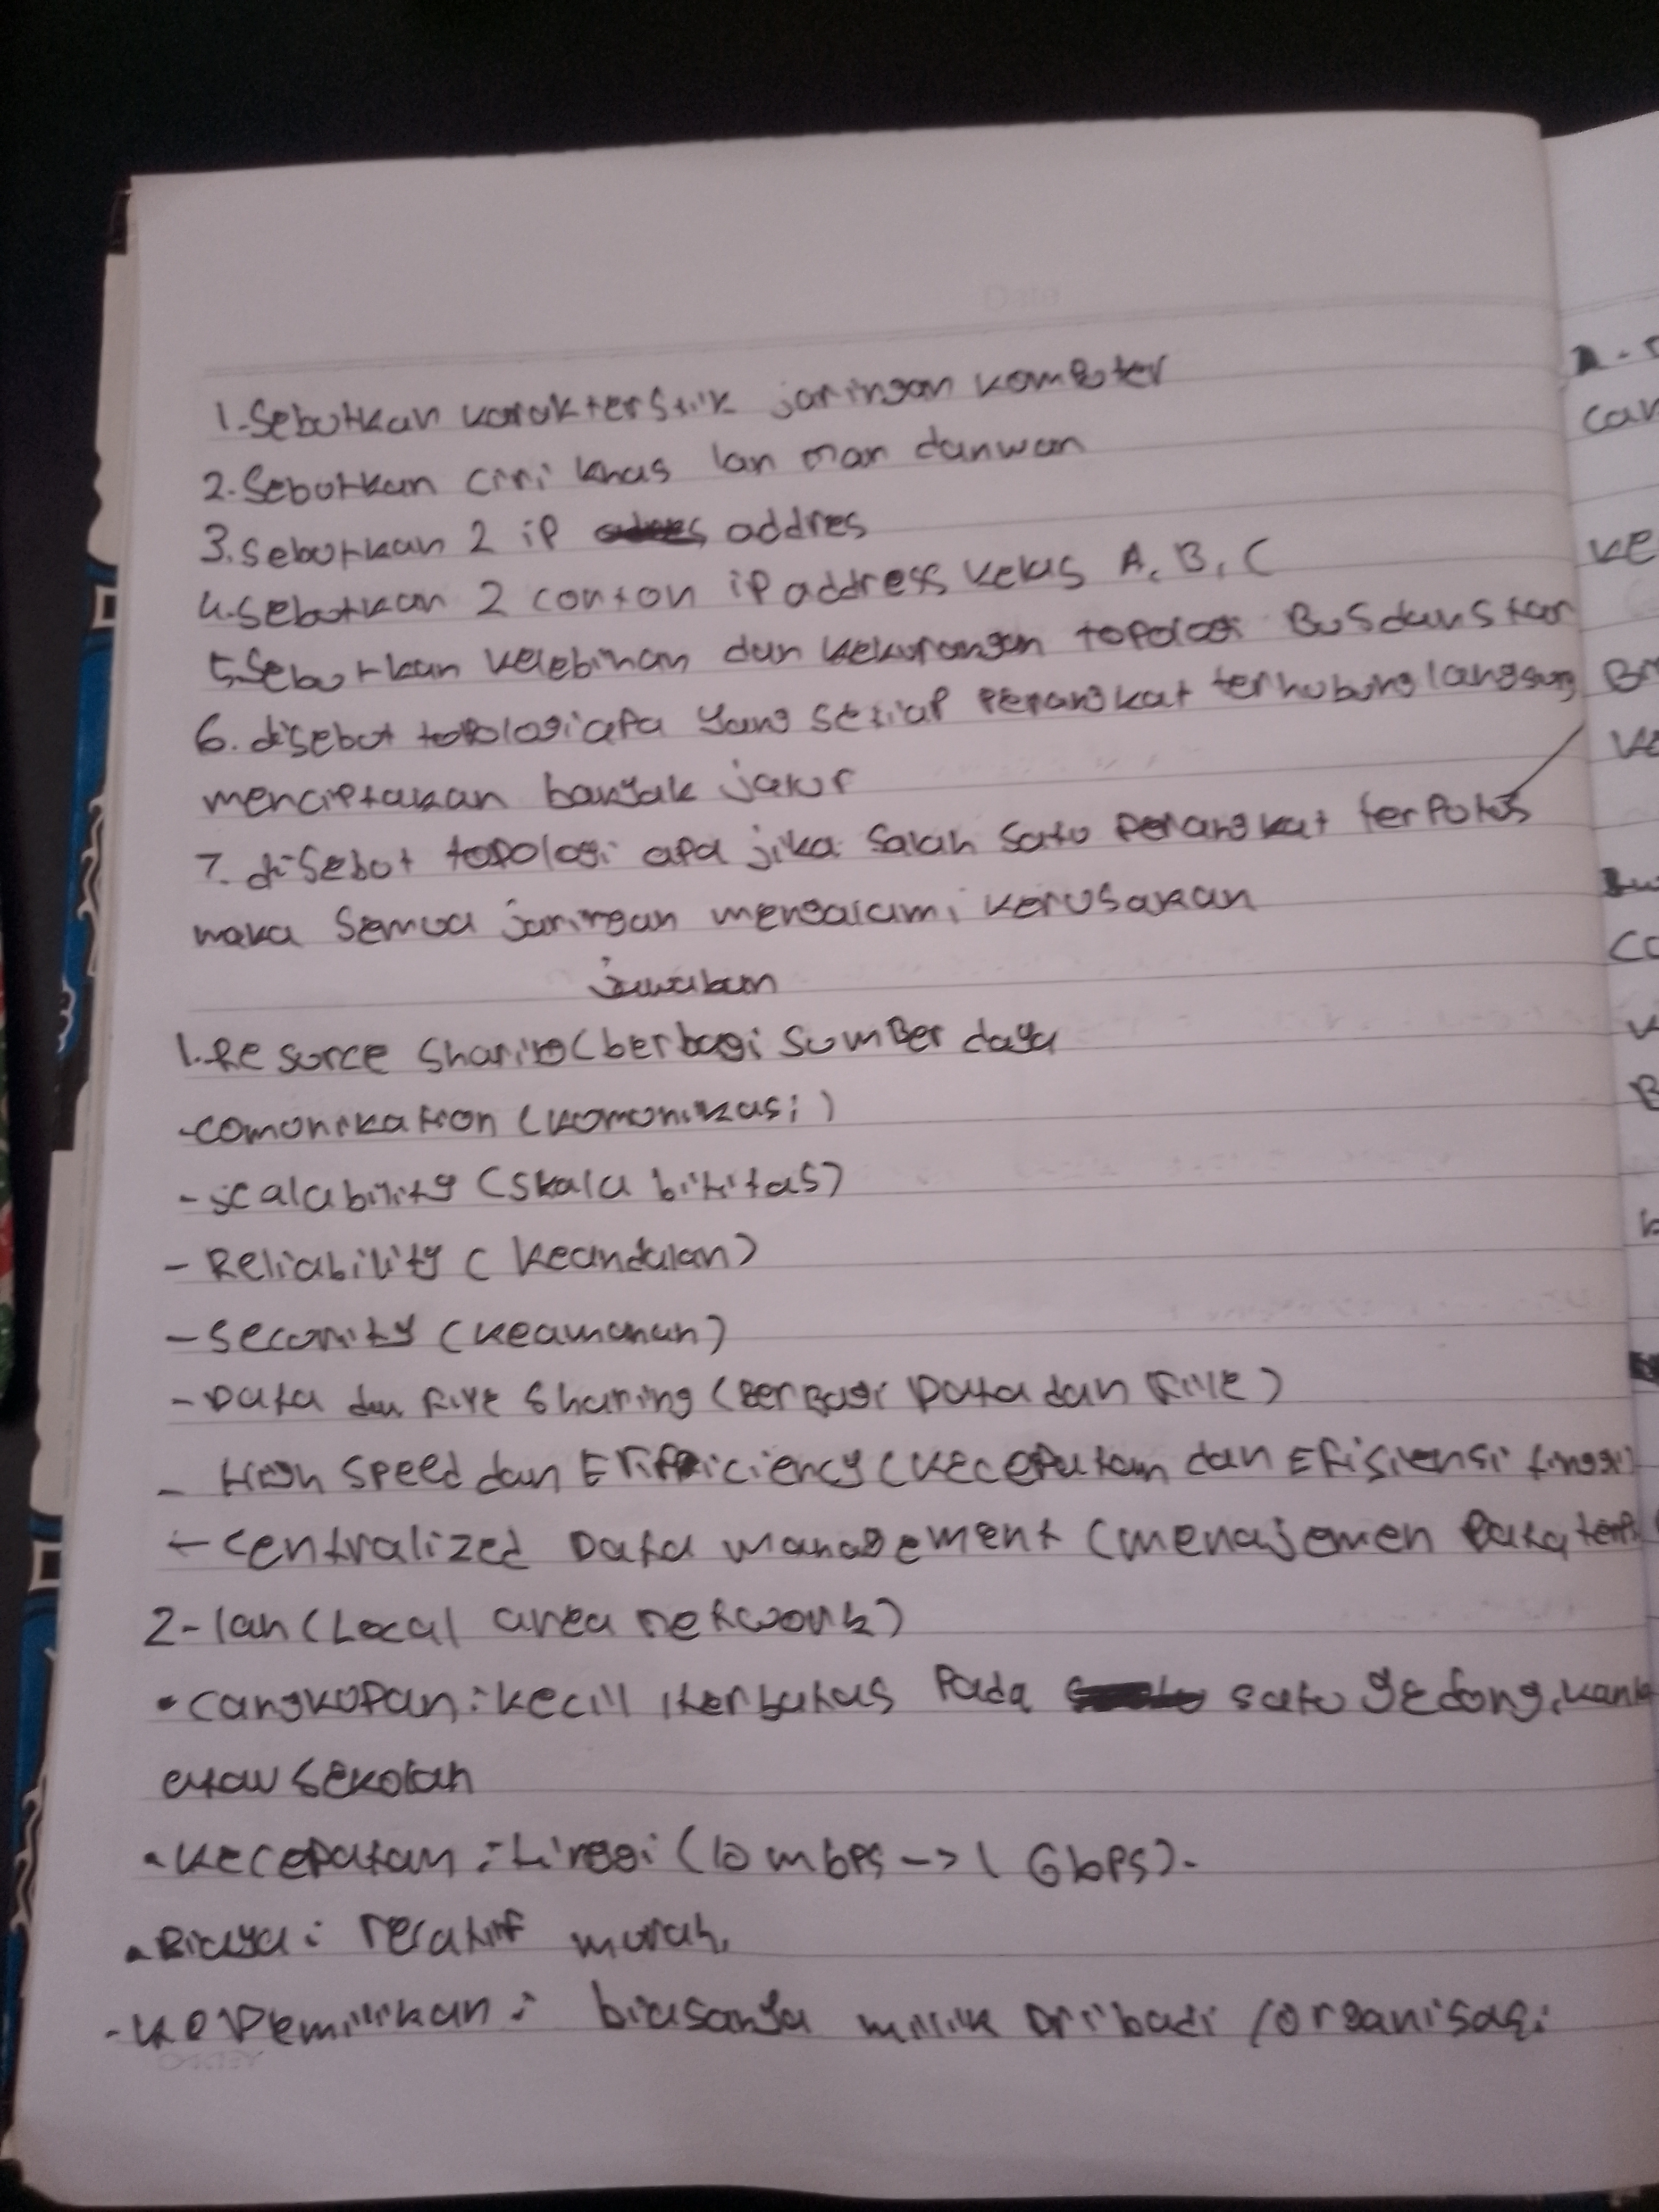 Date
1. Sebutkan karakterstik jaringan komputer
2. Sebutkan ciri khas lan man dan wan
3. Sebutkan 2 ip addres
4. Sebutkan 2 conton ip address kelas A, B, C
5. Sebutkan kelebihan dan kekurangan topologi Bus dan star
6. disebut topologi apa yang setiap perangkat terhubung langsung
menciptakan banyak jalur
7. disebut topologi apa jika salah satu perangkat terputus
maka semua jaringan mengalami kerusakan
jawaban
1. Resorce Sharing (berbagi sumBer daya
- comonikation (komonikasi)
- scalability (skala bilitas)
- Reliability (keandalan)
- Security (keamanan)
- Data dan File Sharing (BerBagi Data dan File)
- High speed dan Efficiency (kecepatan dan Efisiensi tinggi)
- centralized Data management (menajemen Data
2- lan (Local area network)
• cangkupan : kecill /terbatas Pada satu gedong,
atau sekolah
• kecepatan : tinggi (10 mbps -> 1 Gbps).
• Biaya : relatif murah,
- kepemilikan : biasanya milik pribadi / organisasi